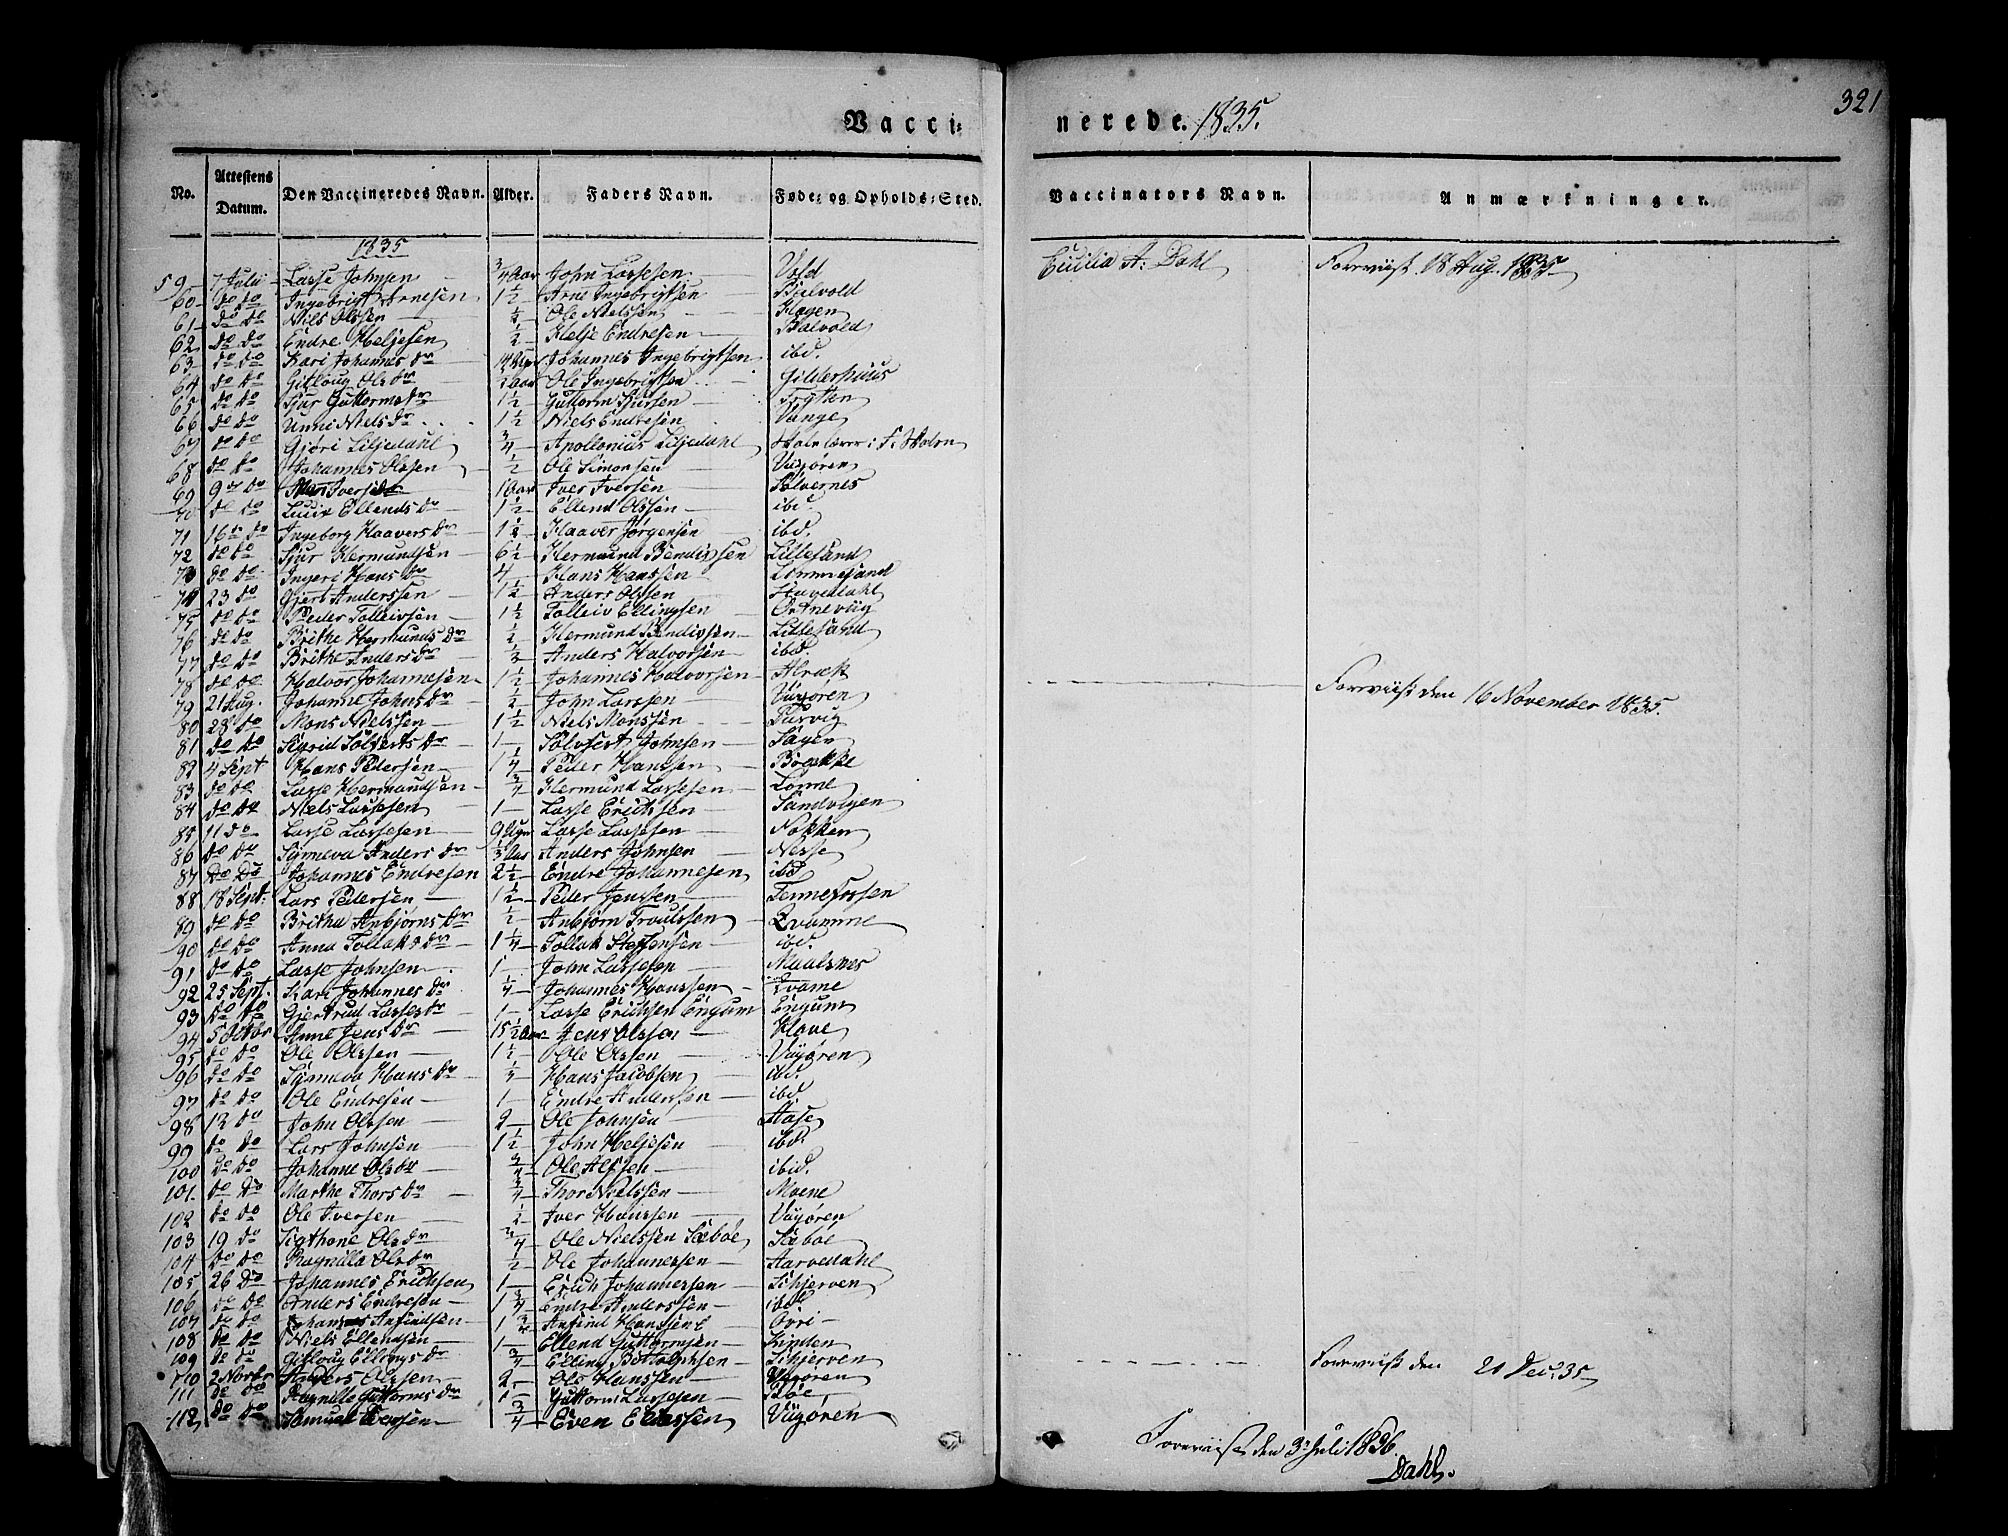 321
Vacci: nerede. 1835.
No. Attestens Datum. Den Vaccineredes Navn. Alder. Faders Navn. Føde- og Opholds-Sted. Vaccinators Navn. Anmærkninger.
1835
59 7 Julii Lasse Johnsen 3/4 Aar John Lassesen Vold Cicilia A. Dahl Foreviist 18 Aug. 1835
60 do do Ingebrigt Arnesen 1 1/2 Arne Ingebrigtsen
61 do do Niels Olssen 1/2 Ole Nielssen Hagen
62 do do Endre Heljesen 1/2 Helje Endresen
63 do do Kari Johannes dr Johannes Ingebrigtsen ibd.
64 do do Gitloug Ols dr Ole Ingebrigtsen Gilderhuus
65 do do Sjur Guttorms dr 1 1/2 Guttorm Sjursen Trytten
66 do do Unni Niels dr 1 1/2 Niels Endresen Vange
67 do do Gjøri Liljedahl 3/4 Apollonius Liljedahl
68 do do Johannes Olssen 1/2 Ole Simonsen Viigøren
69 9 do 1 Aar Iver Iversen Sølvernes
70 do do Ellends dr 1 1/2 Ellend Olssen ibd.
71 16 do Ingeborg Haavers dr 1 1/2 Haaver Jørgensen ibd.
72 do do Sjur Hermundsen 6 1/2 Hermund Bendixsen Lillesand
73 do do Ingeri Hans dr 4 Hans Hanssen
74 23 do Gjert Anderssen 1 1/2 Anders Olssen
75 do do Peder Tolleivsen 1 1/2 Tolleiv Ellingsen Ortneviig
76 do do Brithe Hermunds dr 1/2 Hermund Bendixsen Lillesand
77 do do Brithe Anders dr 1/2 Anders Halvorsen ibd.
78 do do Halvor Johannesen 1 1/2 Johannes Halvorsen Alræk
79 21 Aug. Johanne Johns dr 1/2 John Larssen Viigøren Foreviist den 16 November 1835.
80 28 do Mons Nielssen 1 1/2 Niels Monssen
81 do do Sigrid Sølfests dr 1 Sølvfest Johnsen
82 4 Sept Hans Pedersen 1 1/4 Peder Hanssen Brække
83 do do Lasse Hermundsen 3/4 Hermund Lassesen
84 do do Niels Lassesen 1 Lasse Erichsen Sandvigen
85 11 do Lasse Lassesen 9 Ugr Lasse Lassesen Nokken
86 do do Synneva Anders dr Anders Johnsen Nesse
87 do do Johannes Endresen 2 1/2 Endre Johannesen ibd
88 18 Sept. Lars Pedersen 1 1/2 Peder Jenssen
89 do do Britha Anbjørns dr 1/2 Anbjørn Troulssen Qvamme
90 do do Anna Tollaks dr 1 1/4 Tollak Steffensen ibd.
91 do do Lasse Johnsen 1 John Lassesen Maalsnes
92 25 Sept. Kari Johannes dr 1/4 Johannes Hanssen Qvame
93 do do Gjertrud Lasses dr 1 Lasse Erichsen Engum Engum
94 5 Octbr Anne Jens dr 15 1/2 Aar Jens Olssen Hove
95 do do Ole Olssen 1 1/2 Ole Olssen Viigøren
96 do do Synneva Hans dr 1/2 Hans Jacobsen ibd.
97 do do Ole Endresen 1 Endre Anderssen ibd.
98 12 do John Olssen 2 Ole Johnsen Aase
99 do do Lars Johnsen 1 1/2 John Heljesen ibd.
100 do do Johanne Ols dr 3/4 Ole Alfsen ibid.
101 do do Marthe Thors dr 3/4 Thor Nielssen Moene
102 do do Ole Iversen 1/2 Iver Hanssen Viigøren
103 19 do Ols dr 3/4 Ole Nielssen Sæbøe Sæbøe
104 do do Ragnilla Ols dr 1/2 Ole Johannessen Aarvedahl
105 26 do Johannes Erichsen 1 Erich Johannessen Schjerven
106 do do Anders Endresen 1 3/4 Endre Anderssen ibd
107 do do Johannes Anfindsen 1 3/4 Anfind Hanssen Øvri
108 do do Niels Ellendsen 1 Ellend Guttormsen
109 do do Gitloug Ellings dr 3/4 Elling Bottolphsen Schjerven Foreviist den 21 Dec. 35
110 2 Novbr Anders Olssen 2 Ole Hanssen Viigøren
111 do do Ragnille Guttorms dr 1 Guttorm Lassesen Bøe
112 do do Samuel Evensen 3/4 Even Viigøren
Foreviist den 3 Juli 1836.
Dahl.